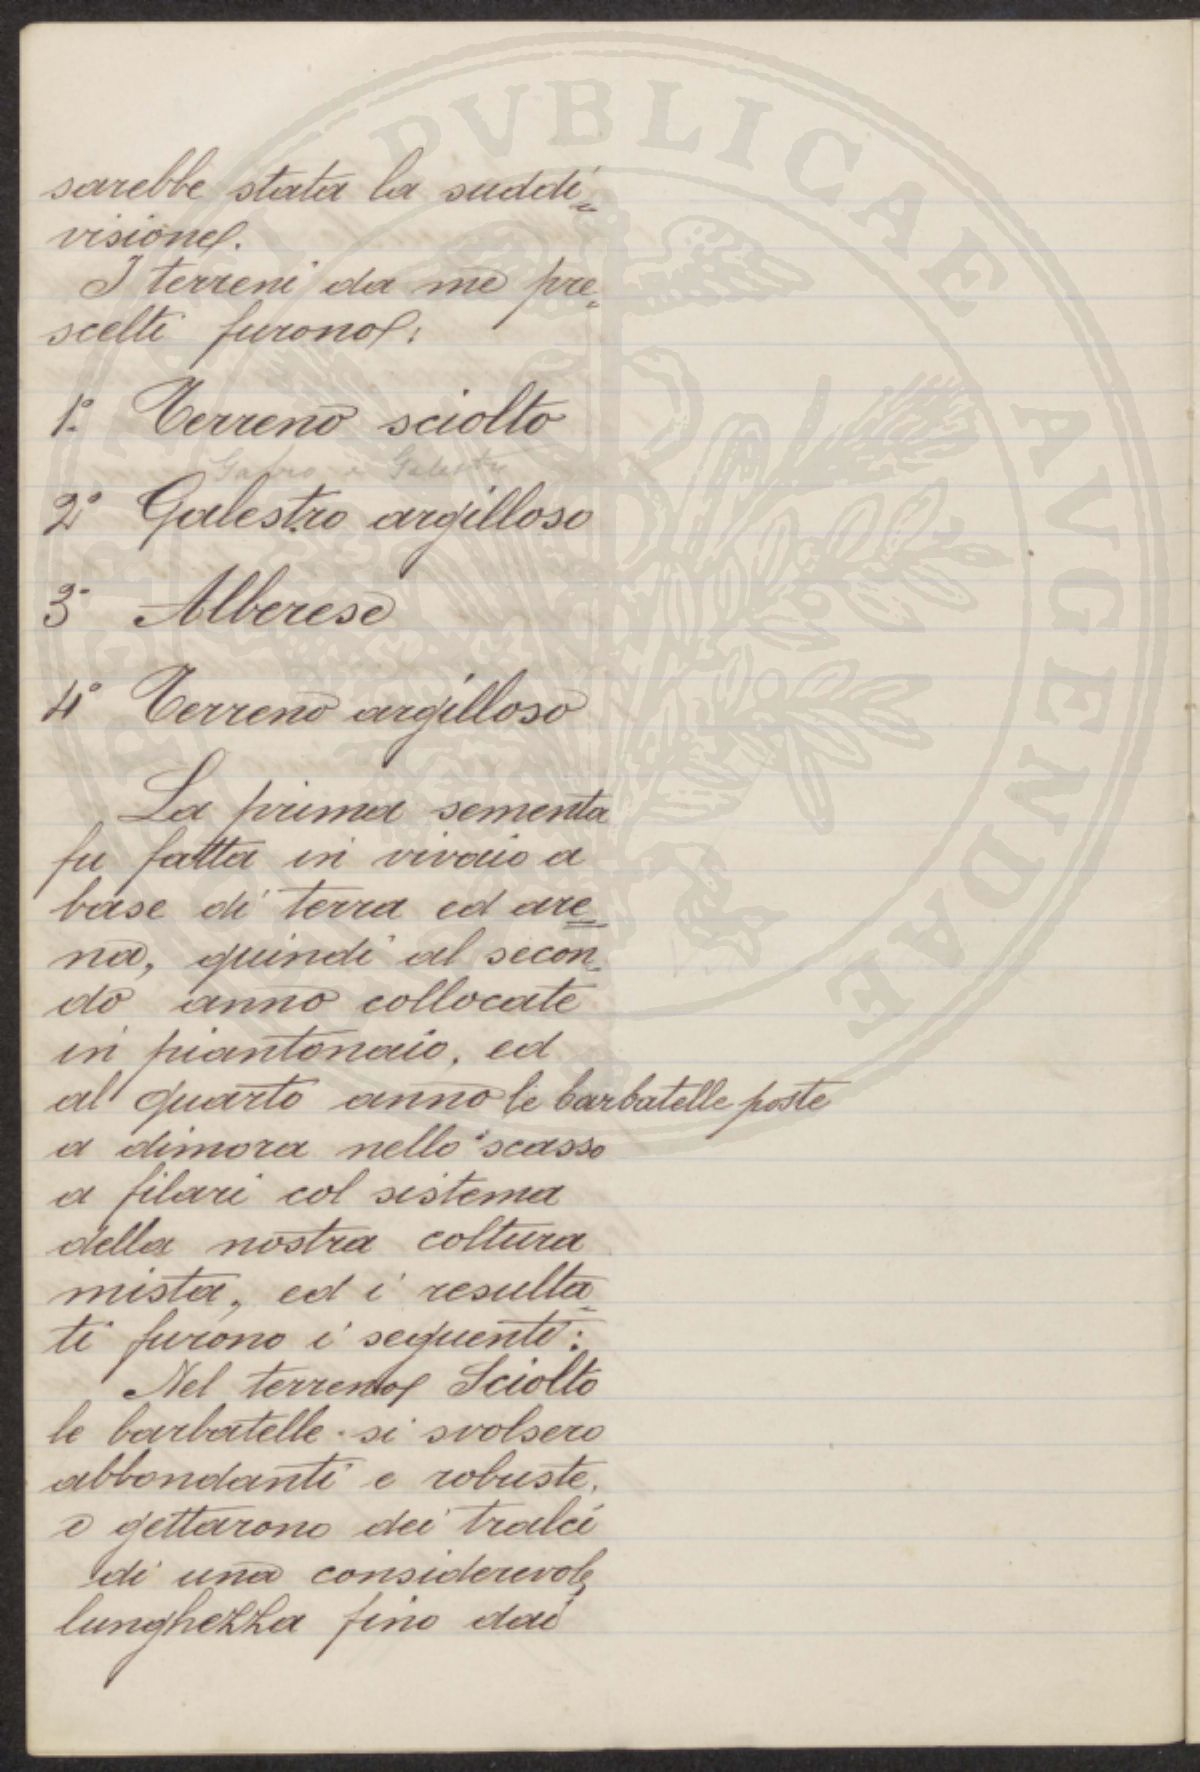 sarebbe stata la suddi=
visione.
I terreni da me pre=
scelti furono:
1º Terreno sciolto
Galestro
2º Galestro argilloso
3º Alberese
4º Terreno argilloso
La prima sementa
fu fatta in vivaio a
base di terra ed are=
na, quindi al secon=
do anno collocate
in piantonaio, ed
al quarto anno le barbatelle poste
a dimora nello scasso
a filari col sistema
della nostra coltura
mista, ed i resulta=
ti furono i seguenti:
Nel terreno Sciolto
le barbatelle si svolsero
abbondanti e robuste,
e gettarono dei tralci
di una considerevole
lunghezza fino dai
PVBLICAE AVGENDAE